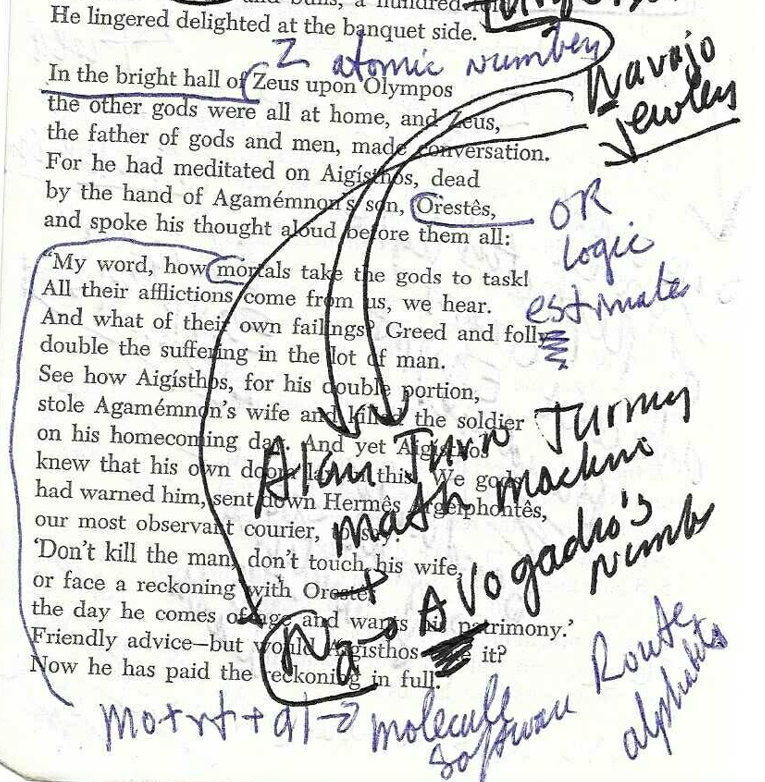 and bulls, a hundred
He lingered delighted at the banquet side.
Z atomic number
Navajo
Jewelry
In the bright hall of Zeus upon Olympos
the other gods were all at home, and Zeus,
the father of gods and men, made conversation.
For he had meditated on Aigísthos, dead
by the hand of Agamémnon's son, Orestês,
and spoke his thought aloud before them all:
OR
logic
estimate
"My word, how mortals take the gods to task!
All their afflictions come from us, we hear.
And what of their own failings? Greed and folly
double the suffering in the lot of man.
See how Aigísthos, for his double portion,
stole Agamémnon's wife and killed the soldier
on his homecoming day. And yet Aigísthos
knew that his own doom lay in this. We gods
had warned him, sent down Hermês Argeiphontês,
our most observant courier, to say:
'Don't kill the man, don't touch his wife,
or face a reckoning with Orestês
the day he comes of age and wants his patrimony.'
Friendly advice—but would Aigísthos it?
Now he has paid the reckoning in full."
Alan Turn Turing
math machine
+
Na → Avogadro's
Numb
mo+rt+al → molecule
software Route
alphabets